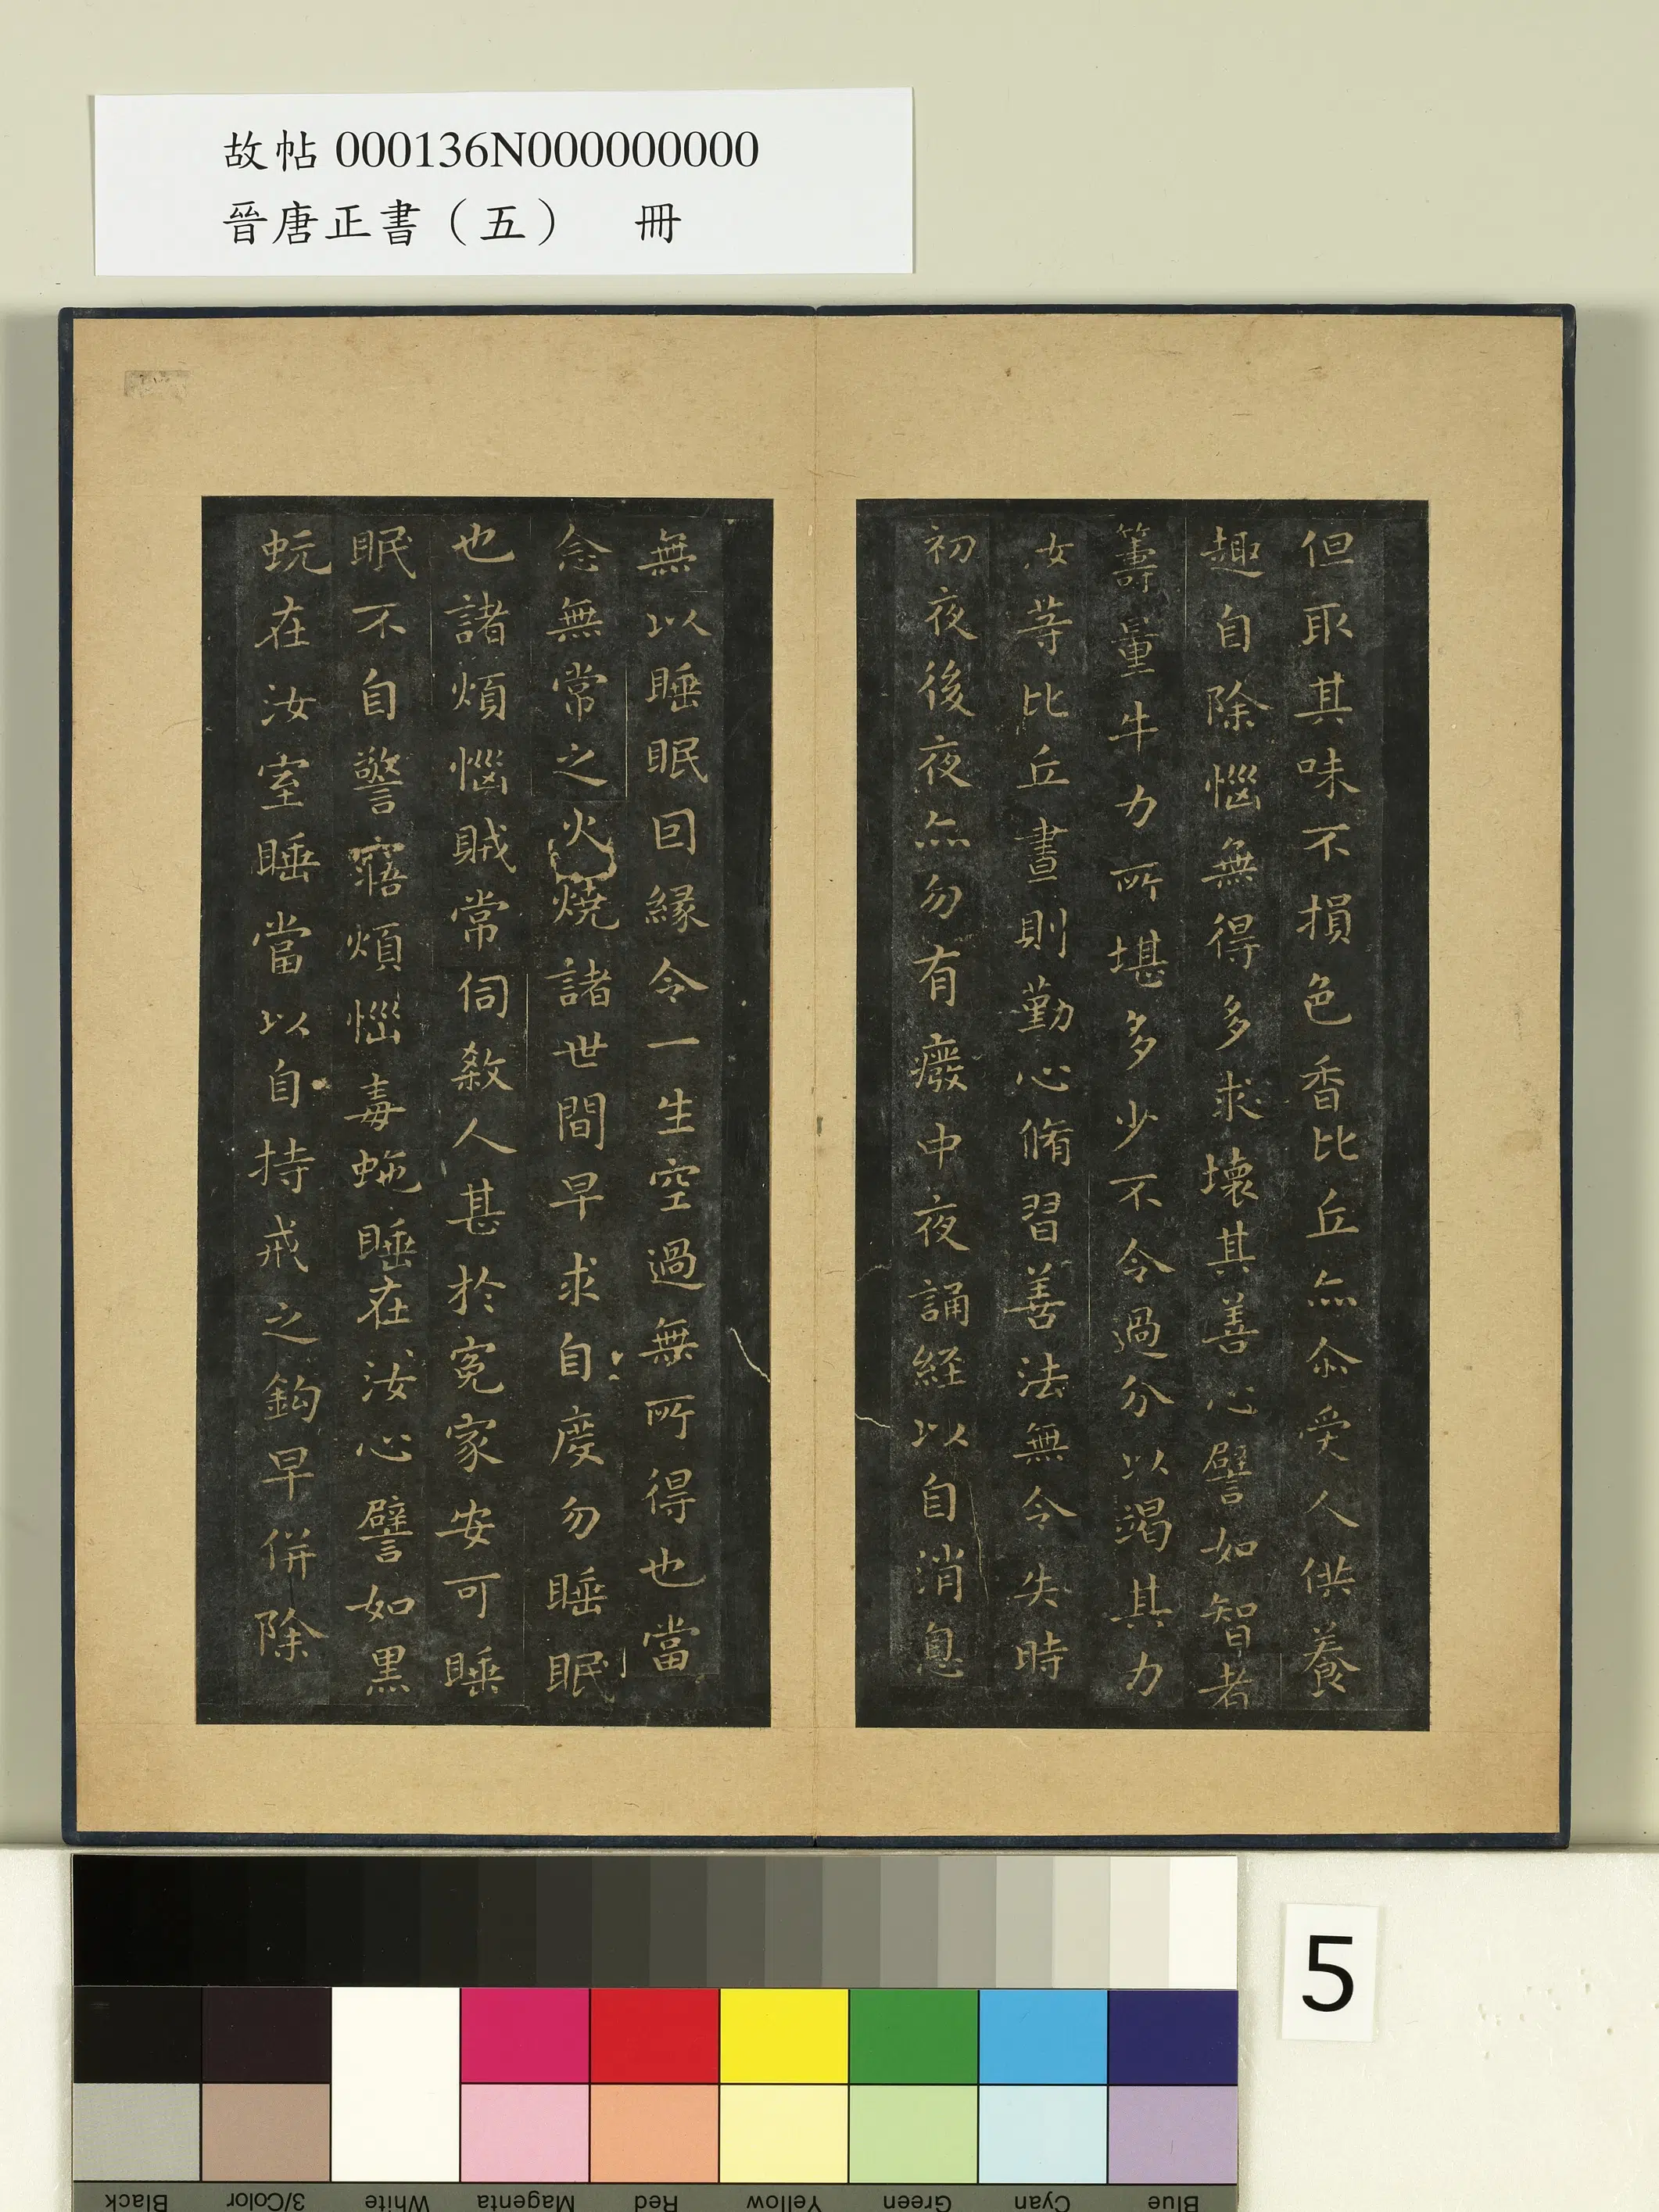 故帖 000136N000000000
晉唐正書（五）　冊
但取其味不損色香比丘亦尒受人供養
趣自除惱無得多求壞其善心譬如智者
籌量牛力所堪多少不令過分以竭其力
汝等比丘晝則勤心脩習善法無令失時
初夜後夜亦勿有癈中夜誦経以自消息
無以睡眠因縁令一生空過無所得也當
念無常之火燒諸世間早求自度勿睡眠
也諸煩惱賊常伺殺人甚於寃家安可睡
眠不自警寤煩惱毒虵睡在汝心譬如黑
蚖在汝室睡當以自持戒之鈎早併除
5
Black
3/Color
White
Magenta
Red
Yellow
Green
Cyan
Blue